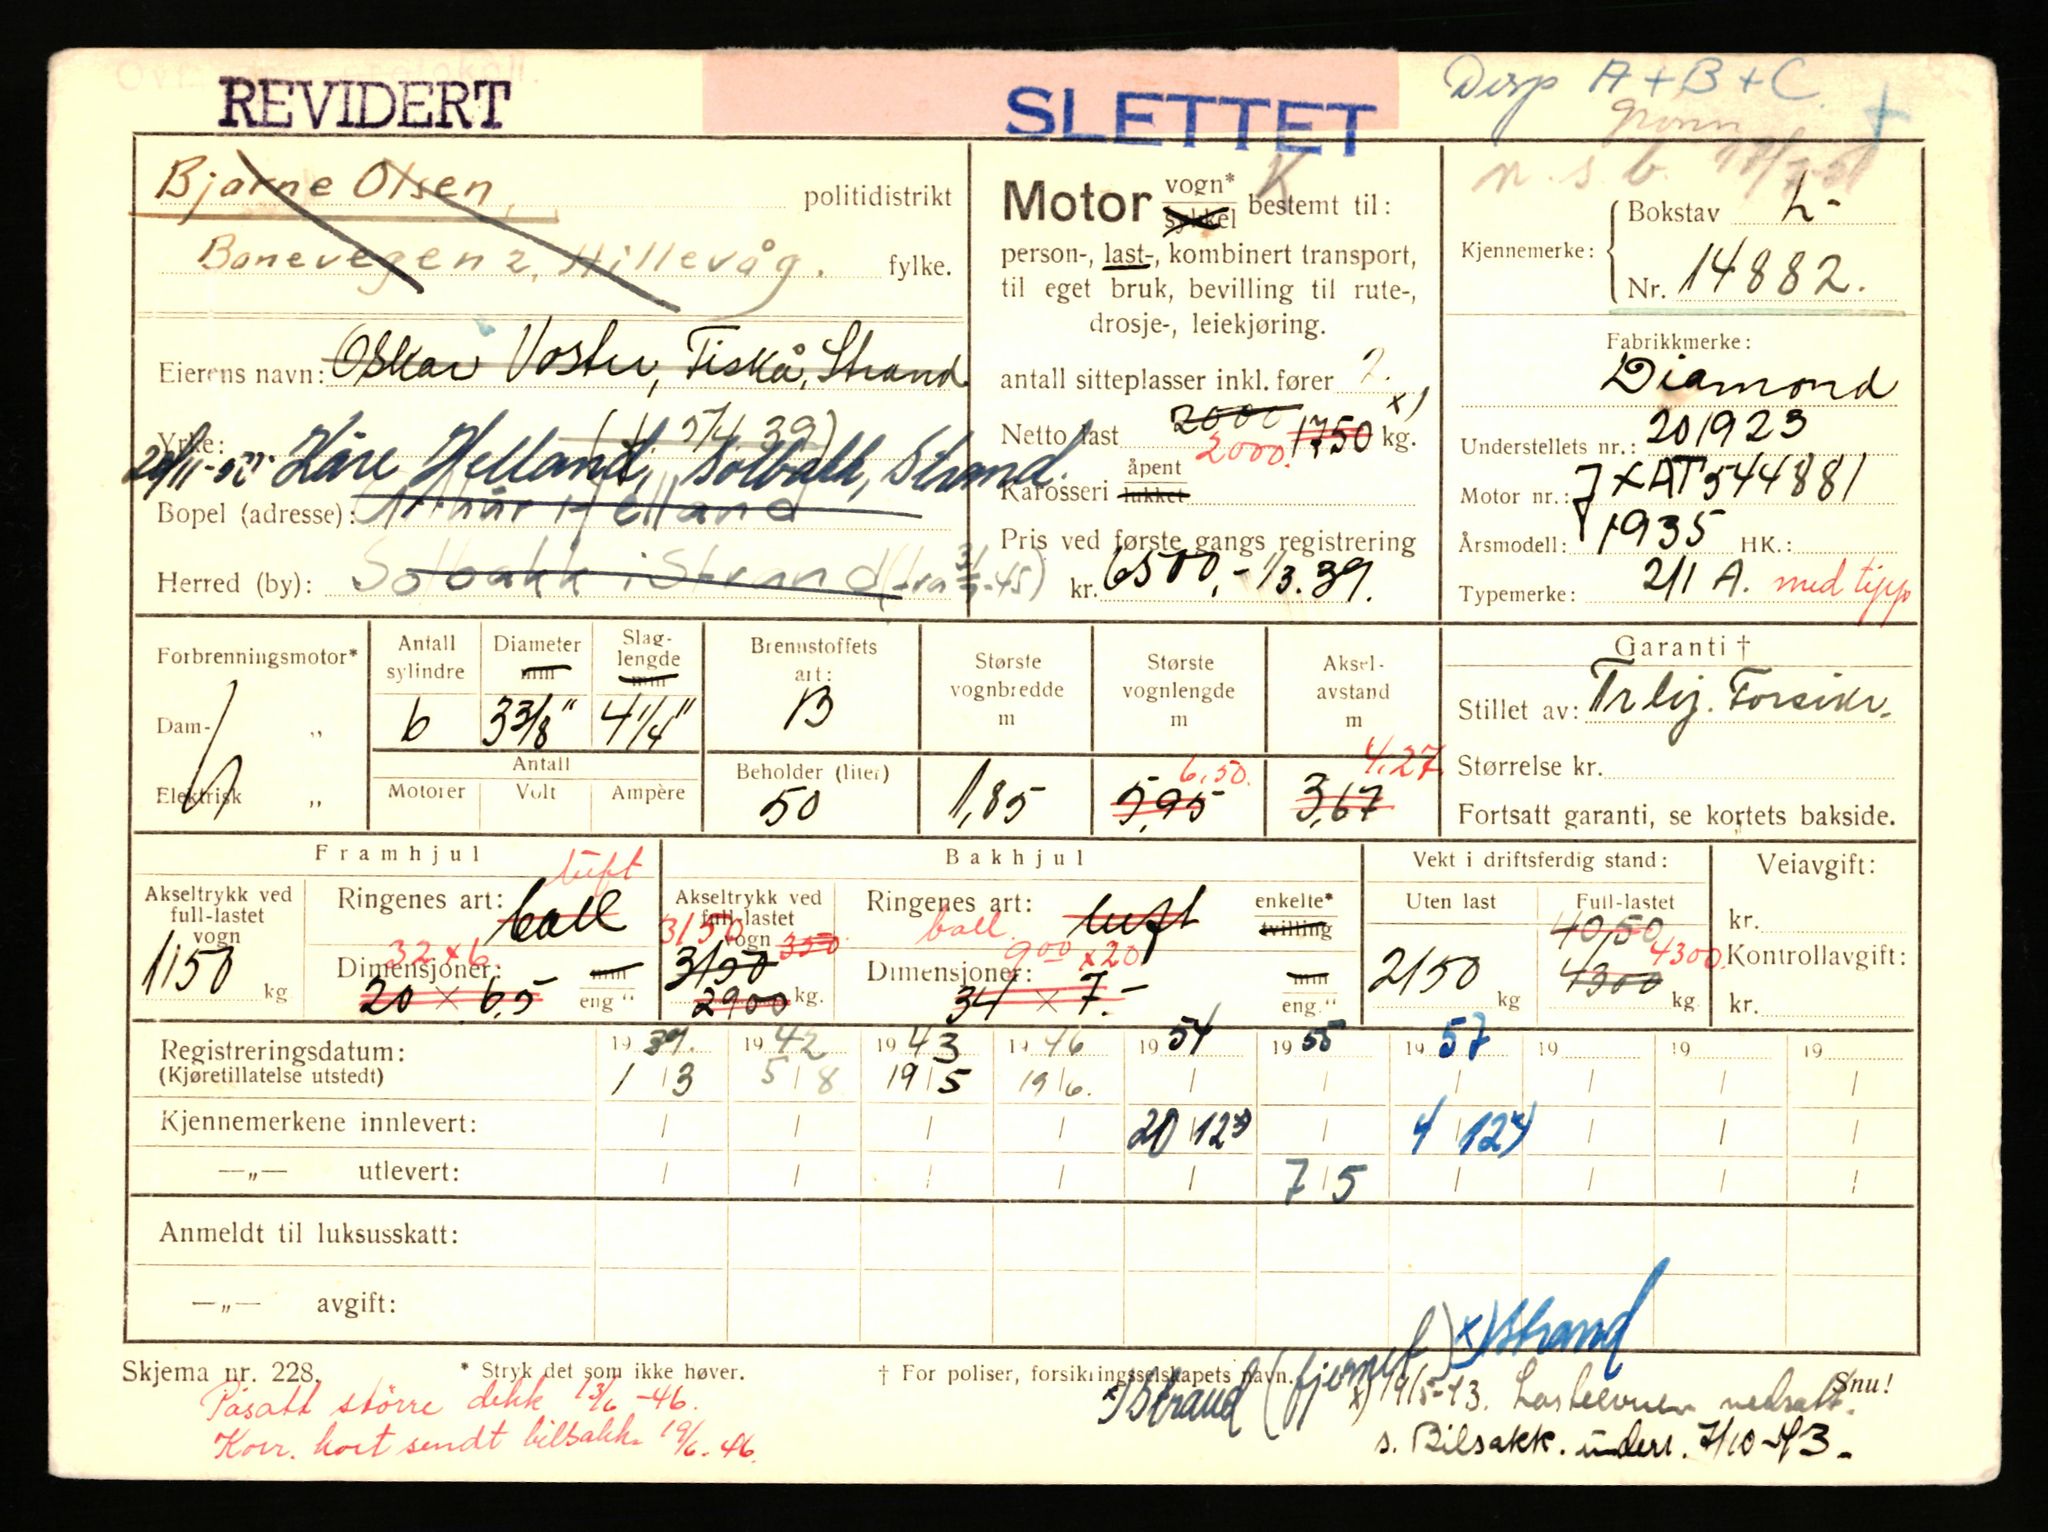 REVIDERT
SLETTET
Disp A + B + C.
n. s. b.
Bjarne Olsen, politidistrikt
Banevegen 2, Hillevåg. fylke.
Eierens navn: Oskar Voster, Fiskå, Strand
Yrke: 5/4 39)
Kåre Helland, Solbakk, Strand.
Bopel (adresse): Arthur Helland
Herred (by): Solbakk i Strand (fra
Motor vogn* sykkel bestemt til:
person-, last-, kombinert transport,
til eget bruk, bevilling til rute-,
drosje-, leiekjøring.
antall sitteplasser inkl. fører 2.
x)
Netto last 2000 2000. 1750 kg.
Karosseri åpent lukket
Pris ved første gangs registrering
kr. 6500,- 1/3. 39.
Kjennemerke: Bokstav L-
Nr. 14882.
Fabrikkmerke:
Diamond
Understellets nr.: 201923
Motor nr.: 7XAT544881
Årsmodell: 1935 HK.:
Typemerke: 211 A. med tipp
Forbrenningsmotor*
Dam- „
Elektrisk „
Antall sylindre 6
Diameter mm 3 3/8"
Slaglengde mm 4 1/4"
Antall
Motorer Volt Ampère
Brennstoffets art: B
Beholder (liter) 50
Største vognbredde m 1,85
Største vognlengde m 6,50. 5,95
Aksel-avstand m 4,27 3,67
Garanti †
Stillet av: Forsikr.
Størrelse kr.
Fortsatt garanti, se kortets bakside.
Framhjul
Akseltrykk ved full-lastet vogn 1150 kg
Ringenes art: luft ball
Dimensjoner: 32 x 6 20 x 6.5 mm eng "
Bakhjul
Akseltrykk ved full-lastet vogn 3150 350 3150 2900 kg.
Ringenes art: ball luft enkelte* tvilling
Dimensjoner: 9.00 x 20 34 x 7.- mm eng."
Vekt i driftsferdig stand:
Uten last 2150 kg
Full-lastet 4050 4300 4300 kg.
Veiavgift:
kr.
Kontrollavgift:
kr.
Registreringsdatum: 19 39. 19 42 19 43 19 46 19 54 19 55 19 57 19 19 19
(Kjøretillatelse utstedt) 1/3 5/8 19/5 19/6.
Kjennemerkene innlevert: 20/12 4/12
—„— utlevert: 7/5
Anmeldt til luksusskatt:
—„— avgift:
x) Strand
Skjema nr. 228. * Stryk det som ikke høver. † For poliser, forsikringsselskapets navn. Snu!
x) Strand (fjernet)
Påsatt större dekk 13/6 -46.
Korr. kort sendt bilsakk. 19/6. 46.
x) 19/5-43. Lasteevnen nedsatt.
s. Bilsakk. underr. 7/10-43-